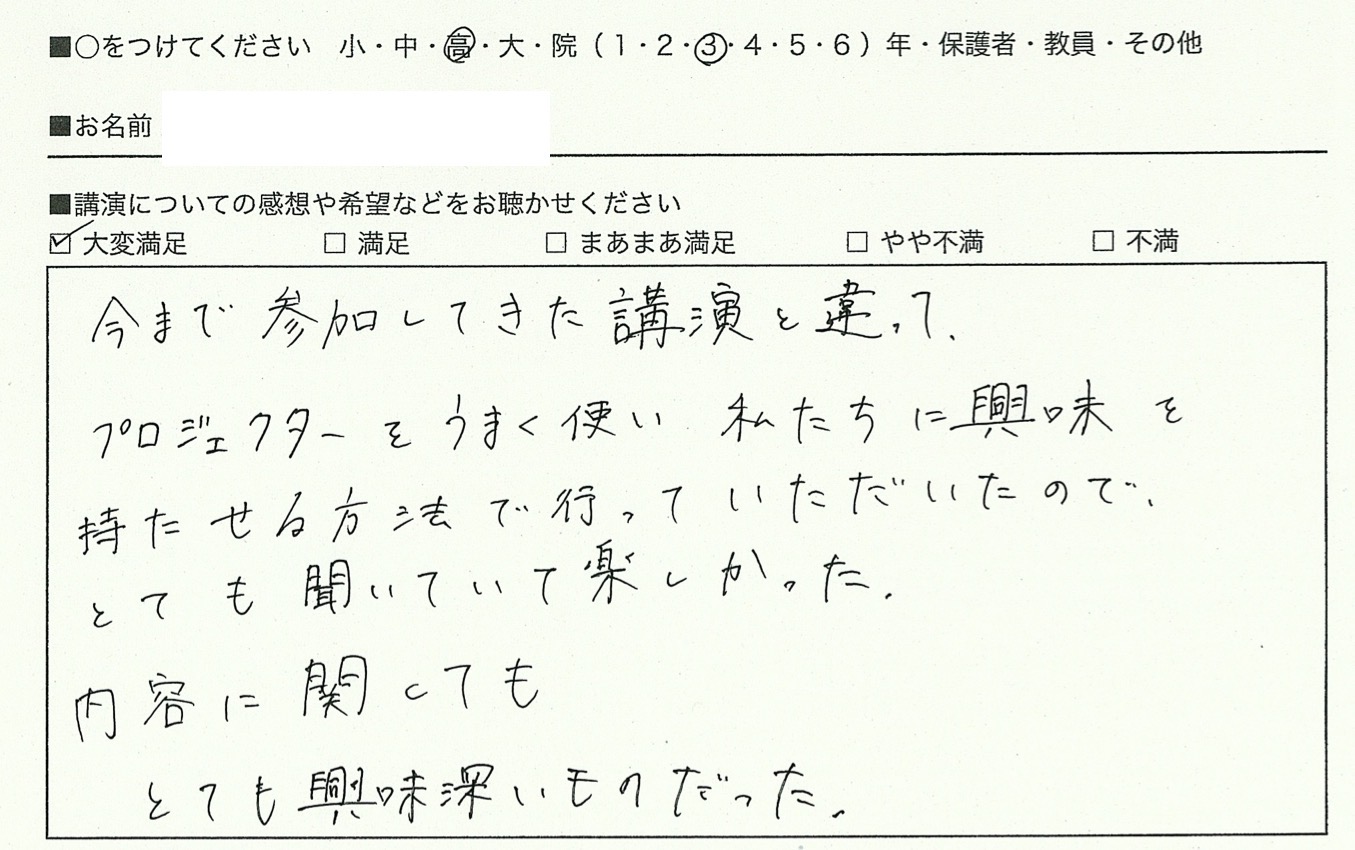 ■○をつけてください　小・中・高・大・院（1・2・3・4・5・6）年・保護者・教員・その他
■お名前
■講演についての感想や希望などをお聴かせください
☑ 大変満足　□ 満足　□ まあまあ満足　□ やや不満　□ 不満
今まで参加してきた講演と違って、
プロジェクターをうまく使い 私たちに興味を
持たせる方法で行っていただいたので、
とても聞いていて楽しかった。
内容に関しても
とても興味深いものだった。